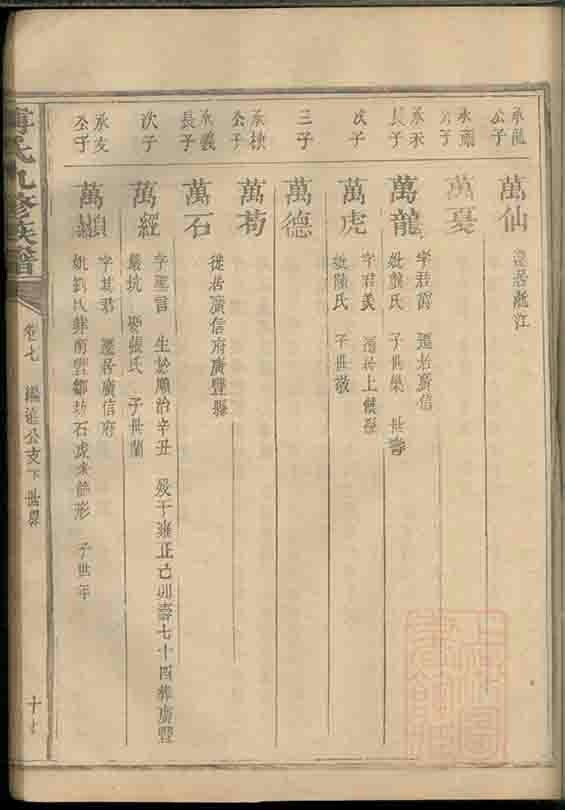 承龍公子
萬仙
遷居浙江
公子
萬憂
承禾長子
萬龍
字君 遷居廣信
妣龔氏 子世榮 世壽
次子
萬虎
字君美 遷居上饒
妣陳氏 子世敬
三子
萬德
公子
萬苟
承義長子
萬石
從居廣信府廣豐縣
次子
萬經
字 生於順治辛丑 歿于雍正己卯壽七十四葬廣豐
坑 娶張氏 子世蘭
承友公子
萬顯
字其君 遷居廣信府
妣劉氏葬南豐鄒坊石虎 形 子世年
氏九修族譜
卷七
公支下世系
十七